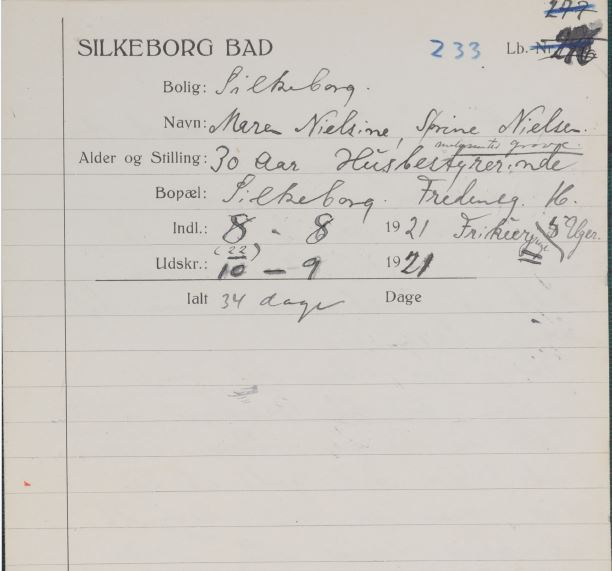 277
SILKEBORG BAD 233 Lb. Nr. 276
Bolig: Silkeborg.
Navn: Maren Nielsine, Sørine Nielsen.
Alder og Stilling: 30 Aar Husbestyrerinde
Bopæl: Silkeborg. Fredensg. 16.
Indl.: 8 - 8 1921 5 Uger.
(22)
Udskr.: 10 - 9 1921
Ialt 34 dage Dage